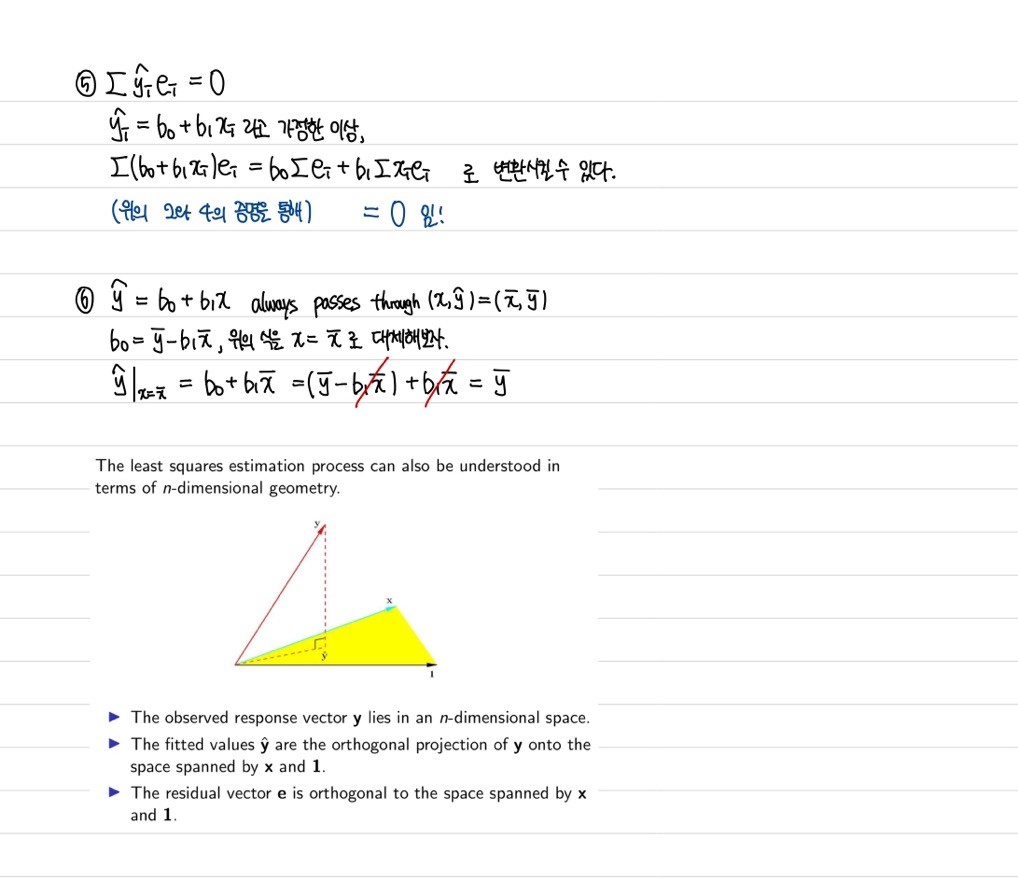 ⑤ Σ ŷᵢeᵢ = 0
ŷᵢ = b₀ + b₁xᵢ 라고 가정한 이상,
Σ(b₀+b₁xᵢ)eᵢ = b₀Σeᵢ + b₁Σxᵢeᵢ 로 변환시킬 수 있다.
(위의 2와 4의 증명을 통해) = 0 임!
⑥ ŷ = b₀ + b₁x always passes through (x, ŷ) = (x̄, ȳ)
b₀ = ȳ - b₁x̄, 위의 식을 x = x̄ 로 대체해보자.
ŷ|ₓ₌x̄ = b₀ + b₁x̄ = (ȳ - b₁x̄) + b₁x̄ = ȳ
The least squares estimation process can also be understood in
terms of n-dimensional geometry.
y
x
ŷ
1
▶ The observed response vector y lies in an n-dimensional space.
▶ The fitted values ŷ are the orthogonal projection of y onto the
space spanned by x and 1.
▶ The residual vector e is orthogonal to the space spanned by x
and 1.